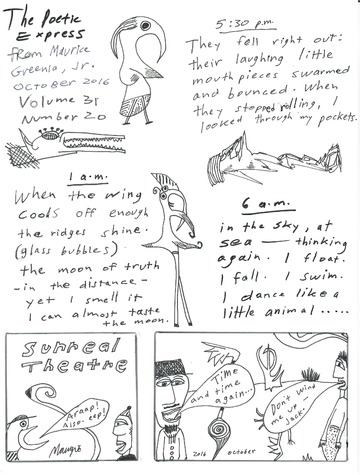 The Poetic
Express
from Maurice
Greenia, Jr.
October 2016
Volume 31
Number 20
5:30 p.m.
They fell right out:
their laughing little
mouth pieces swarmed
and bounced. When
they stopped rolling, I
looked through my pockets.
1 a.m.
When the wing
cools off enough
the ridges shine.
(glass bubbles)
the moon of truth
- in the distance -
yet I smell it
I can almost taste
the moon.
6 a.m.
in the sky, at
sea — thinking
again. I float.
I fall. I swim.
I dance like a
little animal.....
Surreal
Theatre
Araap!
Also-eep!
Maugre
Time
and time
again...
2016 October
Don't wind
me up -
Jack.